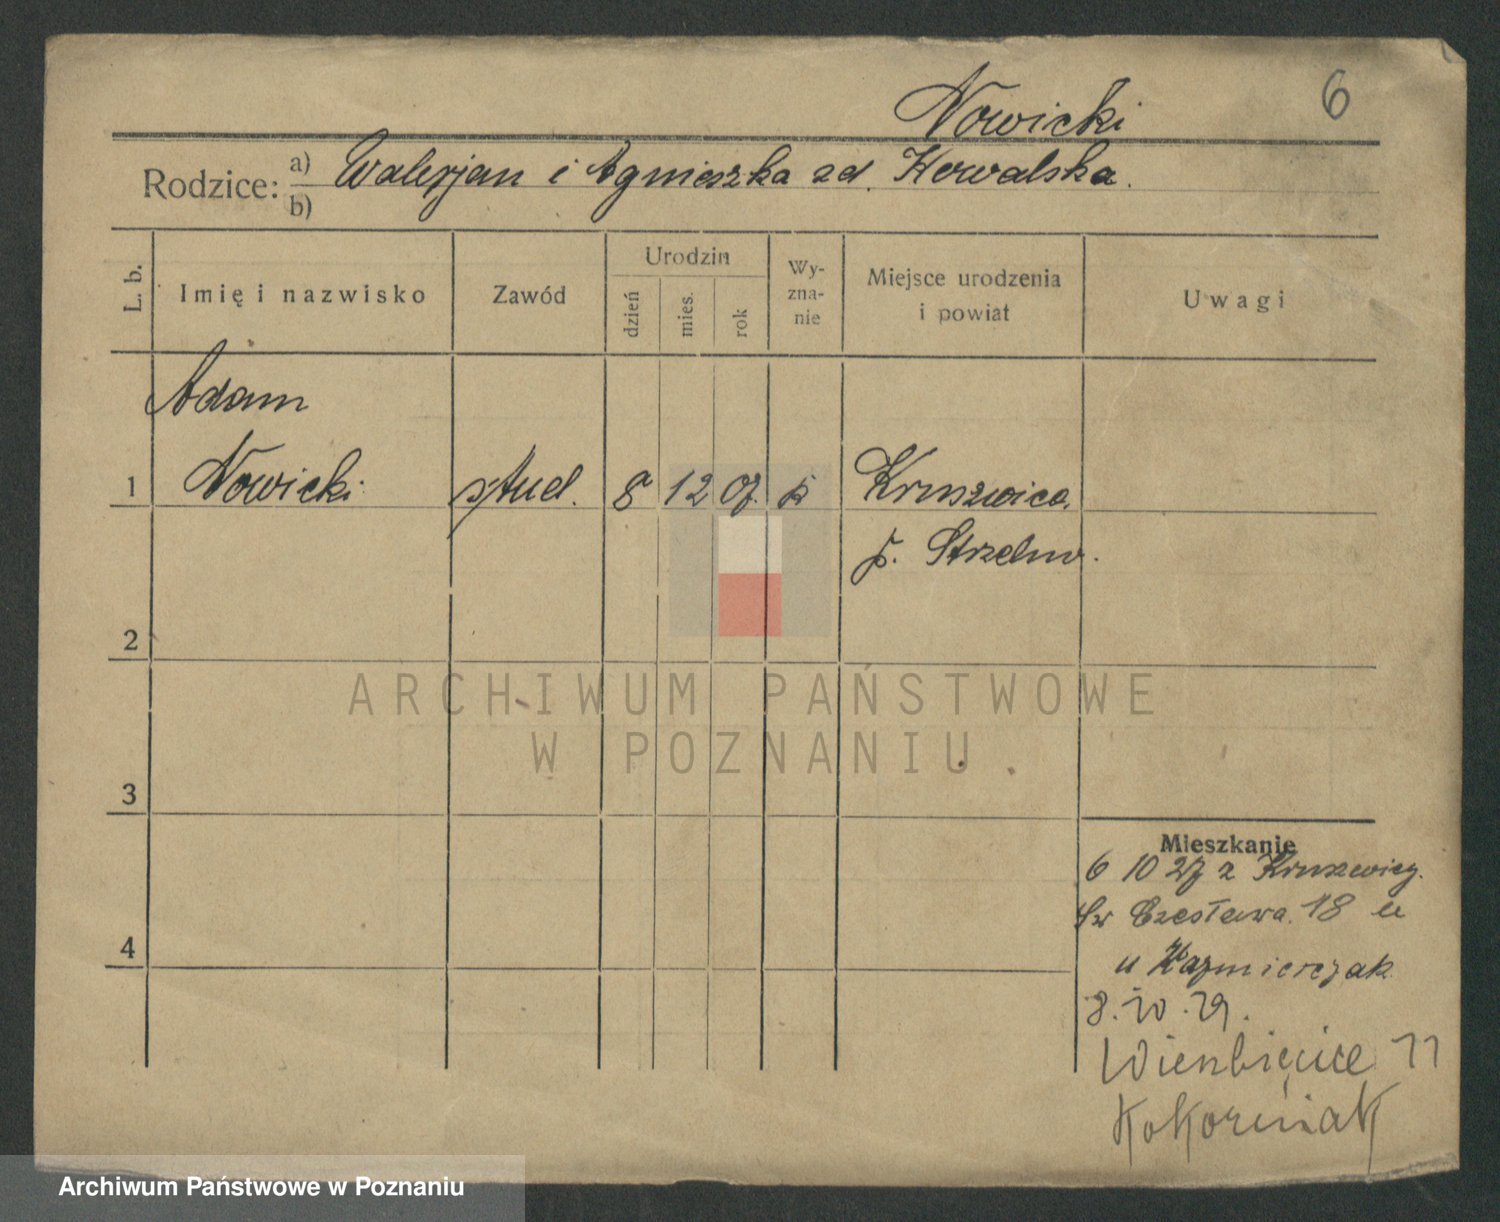 Nowicki
6
Rodzice: a) Walerjan i Agnieszka zd. Kowalska.
b)
L. b.
Imię i nazwisko
Zawód
Urodzin
dzień
mies.
rok
Wy-
zna-
nie
Miejsce urodzenia
i powiat
Uwagi
Adam
1 Nowicki stud. 8 12 07. k Kruszwica.
p. Strzelno.
2
ARCHIWUM PAŃSTWOWE
W POZNANIU
3
Mieszkanie
6 10 27 z Kruszwicy.
Św Czesława 18
4
u Kazmierczak
8.10.29.
Wierzbięcice 11
Kokorniak
Archiwum Państwowe w Poznaniu